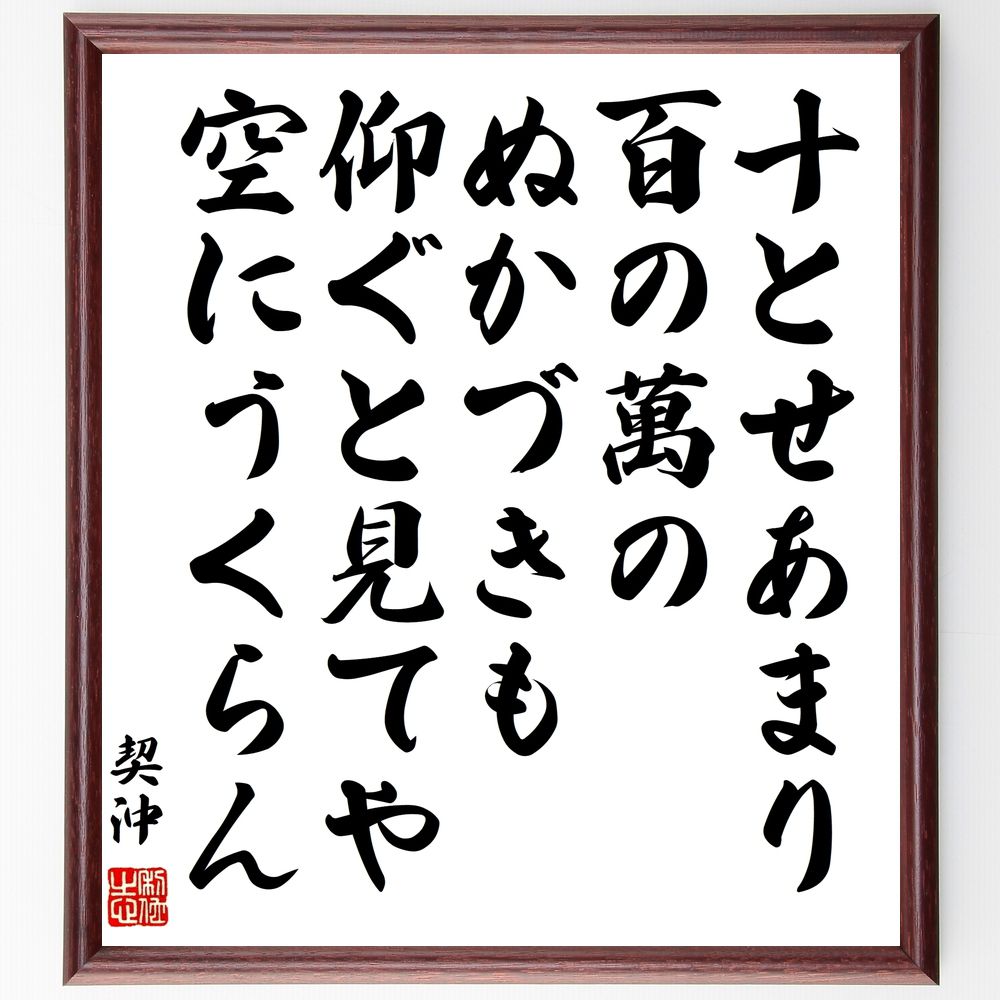 十とせあまり
百の萬の
ぬかづきも
仰ぐと見てや
空にうくらん
契沖